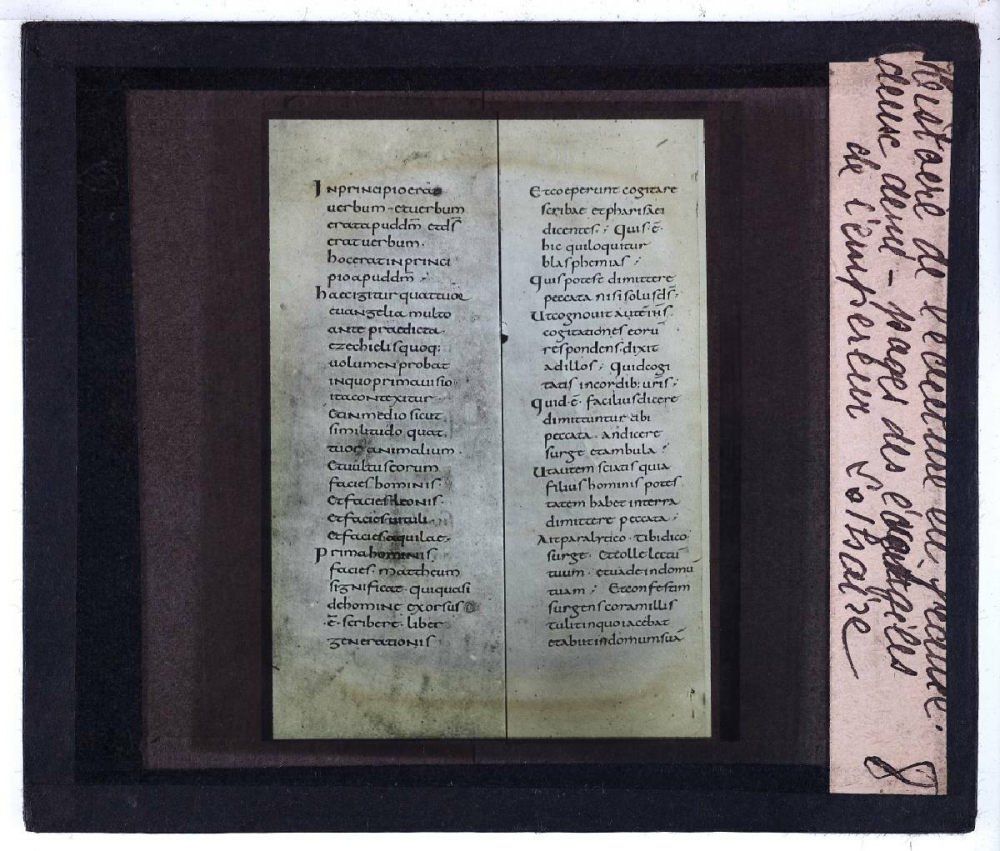 Inprincipio erat
uerbum · etuerbum
erat apuddm̄ · etds̄
erat uerbum ·
hoc erat inprinci
pio apuddm̄ ·;
haec igitur quattuor
euangelia multo
ante praedicta ·
ezechielis quoq;
uolumen probat
inquo prima uisio
ita contexitur ·
Et in medio sicut
similitudo quat
tuor animalium ·
Et uultus eorum
facies hominis ·
Et facies leonis ·
Et facies uituli ·
Et facies aquilae ·
Prima hominis
facies · mattheum
significat · qui quasi
dehomine exorsus
·ē· scribere · liber
generationis ·
Et coeperunt cogitare
scribae et pharisaei
dicentes ·; Quis ·ē·
hic qui loquitur
blasphemias ·;
Quis potest dimittere
peccata nisi solus ds̄ ·
Ut cognouit autem ihs̄
cogitationes eorū
respondens · dixit
ad illos ·; Quid cogi
tatis in cordib; uris̄ ·;
Quid ·ē· facilius dicere
dimittuntur tibi
peccata · an dicere
surge et ambula ·;
Ut autem sciatis quia
filius hominis potes
tatem habet in terra
dimittere peccata ·;
Ait paralytico · tibi dico
surge · Et tolle lectū
tuum · et uade in domū
tuam ·; Et confestim
surgens coram illis
tulit in quo iacebat
et abiit in domum suā
Histoire de l'écriture en France.
deux demi-pages des évangiles
de l'empereur Lothaire
8